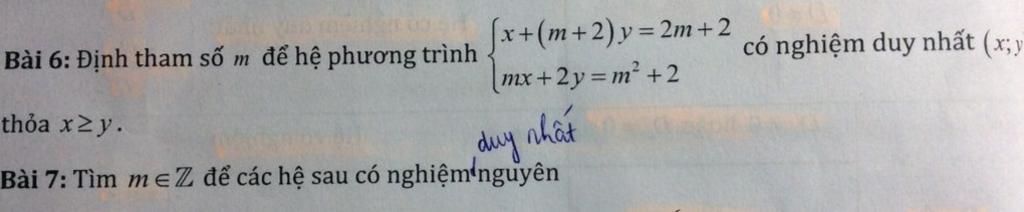 Bài 6: Định tham số m để hệ phương trình { x + (m + 2) y = 2m + 2 có nghiệm duy nhất (x; y
mx + 2y = m² + 2
thỏa x ≥ y.
duy nhất
Bài 7: Tìm m ∈ ℤ để các hệ sau có nghiệm nguyên